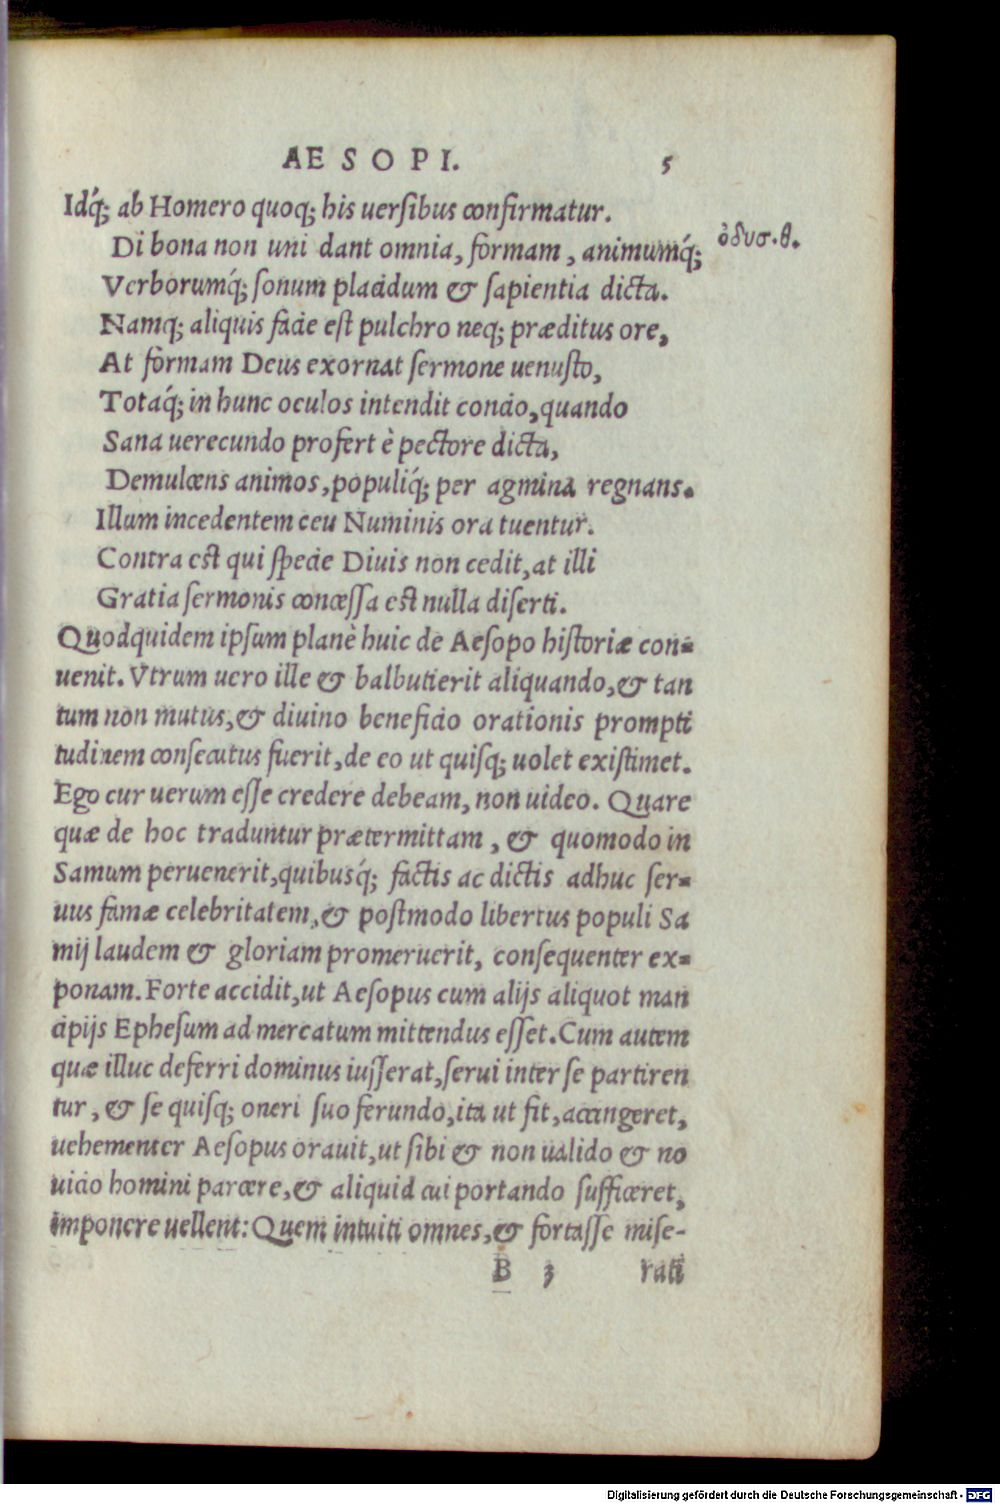 AESOPI. 5
Idq́; ab Homero quoq; his uersibus confirmatur.
Di bona non uni dant omnia, formam, animumq́; ὀδυσ.θ.
Verborumq́; sonum placidum & sapientia dicta.
Namq; aliquis facie est pulchro neq; præditus ore,
At formam Deus exornat sermone uenusto,
Totaq́; in hunc oculos intendit concio, quando
Sana uerecundo profert è pectore dicta,
Demulcens animos, populiq́; per agmina regnans.
Illum incedentem ceu Numinis ora tuentur.
Contra est qui specie Diuis non cedit, at illi
Gratia sermonis concessa est nulla diserti.
Quodquidem ipsum planè huic de Aesopo historiæ con-
uenit. Vtrum uero ille & balbutierit aliquando, & tan
tum non mutus, & diuino beneficio orationis prompti
tudinem consecutus fuerit, de eo ut quisq; uolet existimet.
Ego cur uerum esse credere debeam, non uideo. Quare
quæ de hoc traduntur prætermittam, & quomodo in
Samum peruenerit, quibusq́; factis ac dictis adhuc ser-
uus famæ celebritatem, & postmodo libertus populi Sa
mij laudem & gloriam promeruerit, consequenter ex-
ponam. Forte accidit, ut Aesopus cum alijs aliquot man
cipijs Ephesum ad mercatum mittendus esset. Cum autem
quæ illuc deferri dominus iusserat, serui inter se partiren
tur, & se quisq; oneri suo ferundo, ita ut fit, accingeret,
uehementer Aesopus orauit, ut sibi & non ualido & no
uicio homini parcere, & aliquid cui portando sufficeret,
imponere uellent: Quem intuiti omnes, & fortasse mise-
B 3 rati
Digitalisierung gefördert durch die Deutsche Forschungsgemeinschaft - DFG